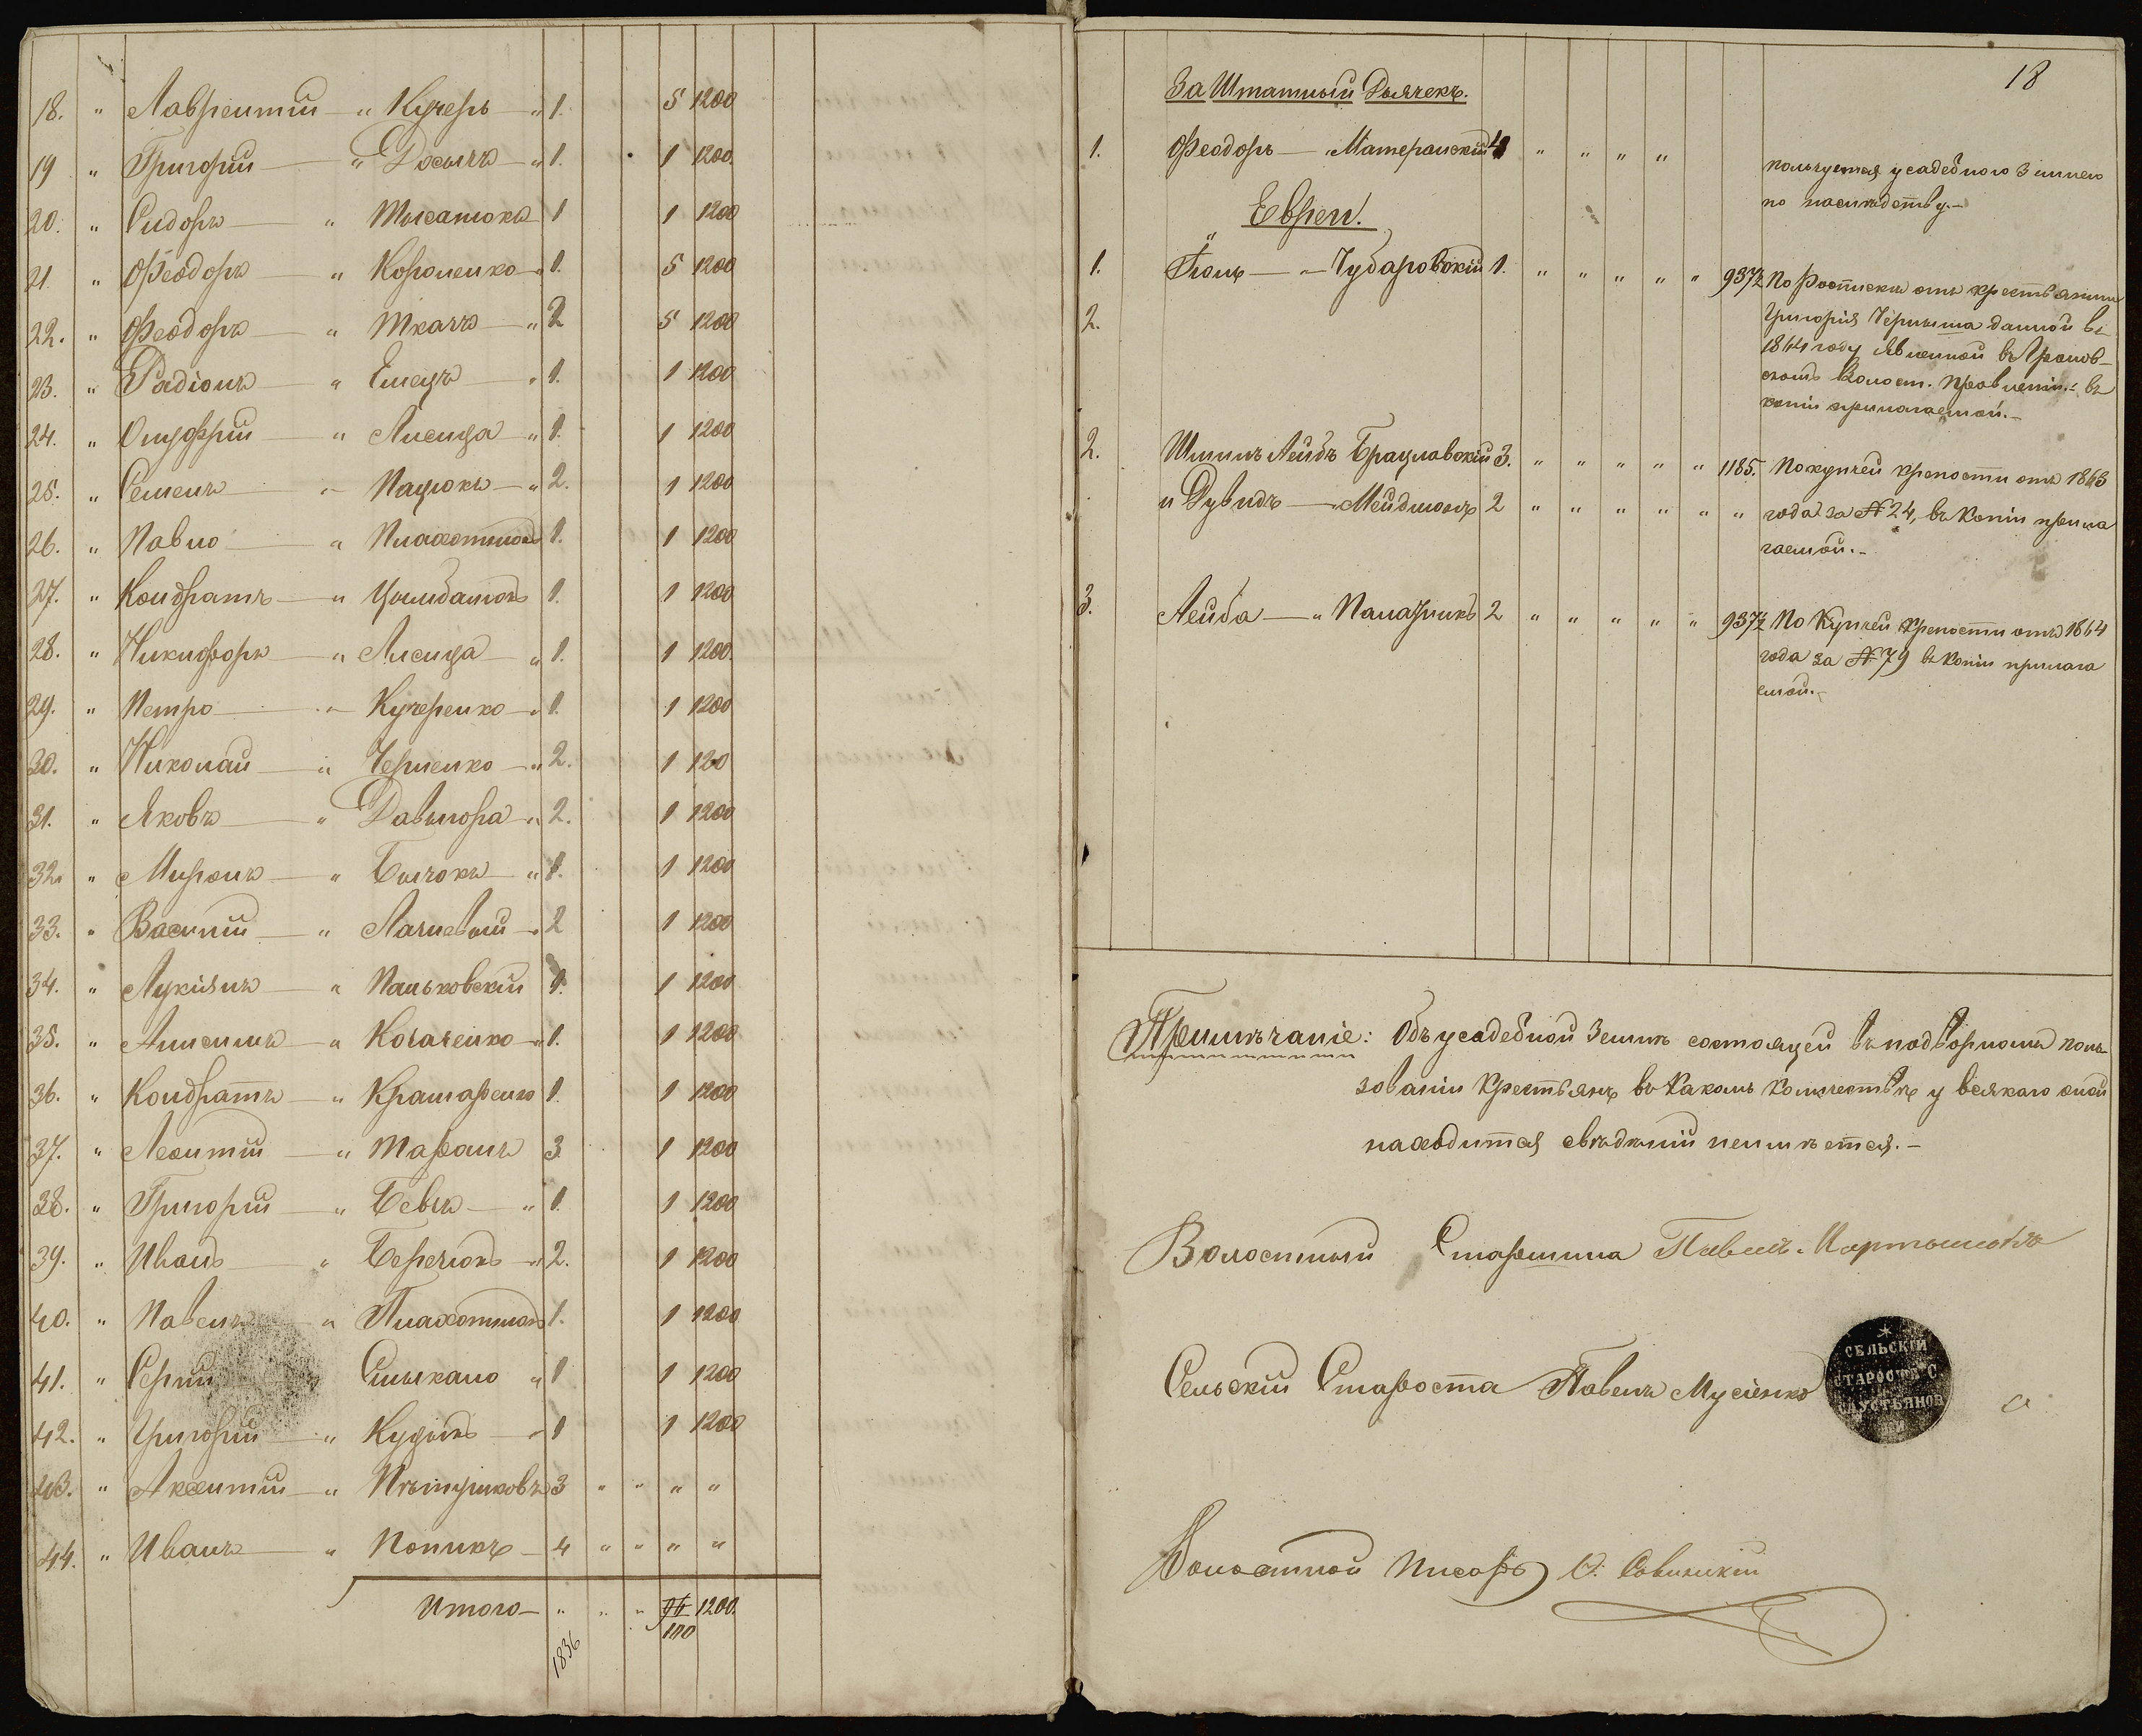 18. " Лаврентій " Кучеръ " 1. 5 1200
19 " Григорій " Досычъ " 1. 1 1200.
20. " Сидоръ " 1 1 1200
21 " Ѳеодоръ " Короленко " 1. 5 1200
22. " Ѳеодоръ " Ткачъ " 2 5 1200
23. " Радіонъ " Емецъ " 1. 1 1200
24. " Онуфрій " Лисица " 1. 1 1200
25. " Семенъ " Пацюкъ " 2. 1 1200
26. " Павло " Плахотнюкъ 1. 1 1200
27. " Кондратъ " Цымбалюкъ 1. 1 1200
28. " Никифоръ " Лисица " 1. 1 1200.
29. " Петро " Кучеренко " 1. 1 1200
30. " Николай " Черненко " 2. 1 120
31. " Яковъ " " 2. 1 1200
32. " Миронъ " Бычокъ " 1. 1 1200
33. " Василій " " 2 1 1200
34. " Лукіянъ " Паньковскій 1. 1 1200
35. " Анисимъ " " 1. 1 1200
36. " Кондратъ " Крамаренко 1. 1 1200
37. " Леонтій " Таранъ 3 1 1200
38. " Григорій " Бевзъ " 1. 1 1200
39. " Иванъ " " 2. 1 1200
40. " Павелъ " Плахотнюкъ 1. 1 1200
41. " " 1 1 1200
42. " Григорій " " 1 1 1200
43. " Аксентій " Пѣтушковъ 3 " " " "
44. " Иванъ " Попикъ 4 " " " "
Итого " " " 96 1200.
110
1836
18
За Штатный Дьячекъ.
1. Ѳеодоръ " 4 " " " " пользуется усадебною Землею
по наслѣдству.
Евреи.
1. " Чубаровскій 1. " " " " " 937½ По Роспискѣ отъ крестьянина
2. Григорія Черныша данной въ
1844 году явленной въ
Волост. Правленіи. въ
копіи прилагаемой.
2. Лейбъ Брацлавскій 3. " " " " " 1185. По купчей крепости отъ 1863
и Дувидъ " 2 " " " " " " года за № 24, въ Копіи прила
гаемой.
3. Лейба " Паларникъ 2 " " " " " 937½ По Купчей крепости отъ 1864
года за № 79 въ Копіи прилага
емой.
Примѣчаніе: Объ усадебной Землѣ состоящей въ подворномъ поль-
зованіи Крестьянъ въ какомъ Количествѣ у всякаго оной
находится свѣдѣній неимѣется.
Волостный Старшина Павелъ
Сельскій Староста Павелъ Мусіенко
СЕЛЬСКІЙ
СТАРОСТА С
Волостной Писарь